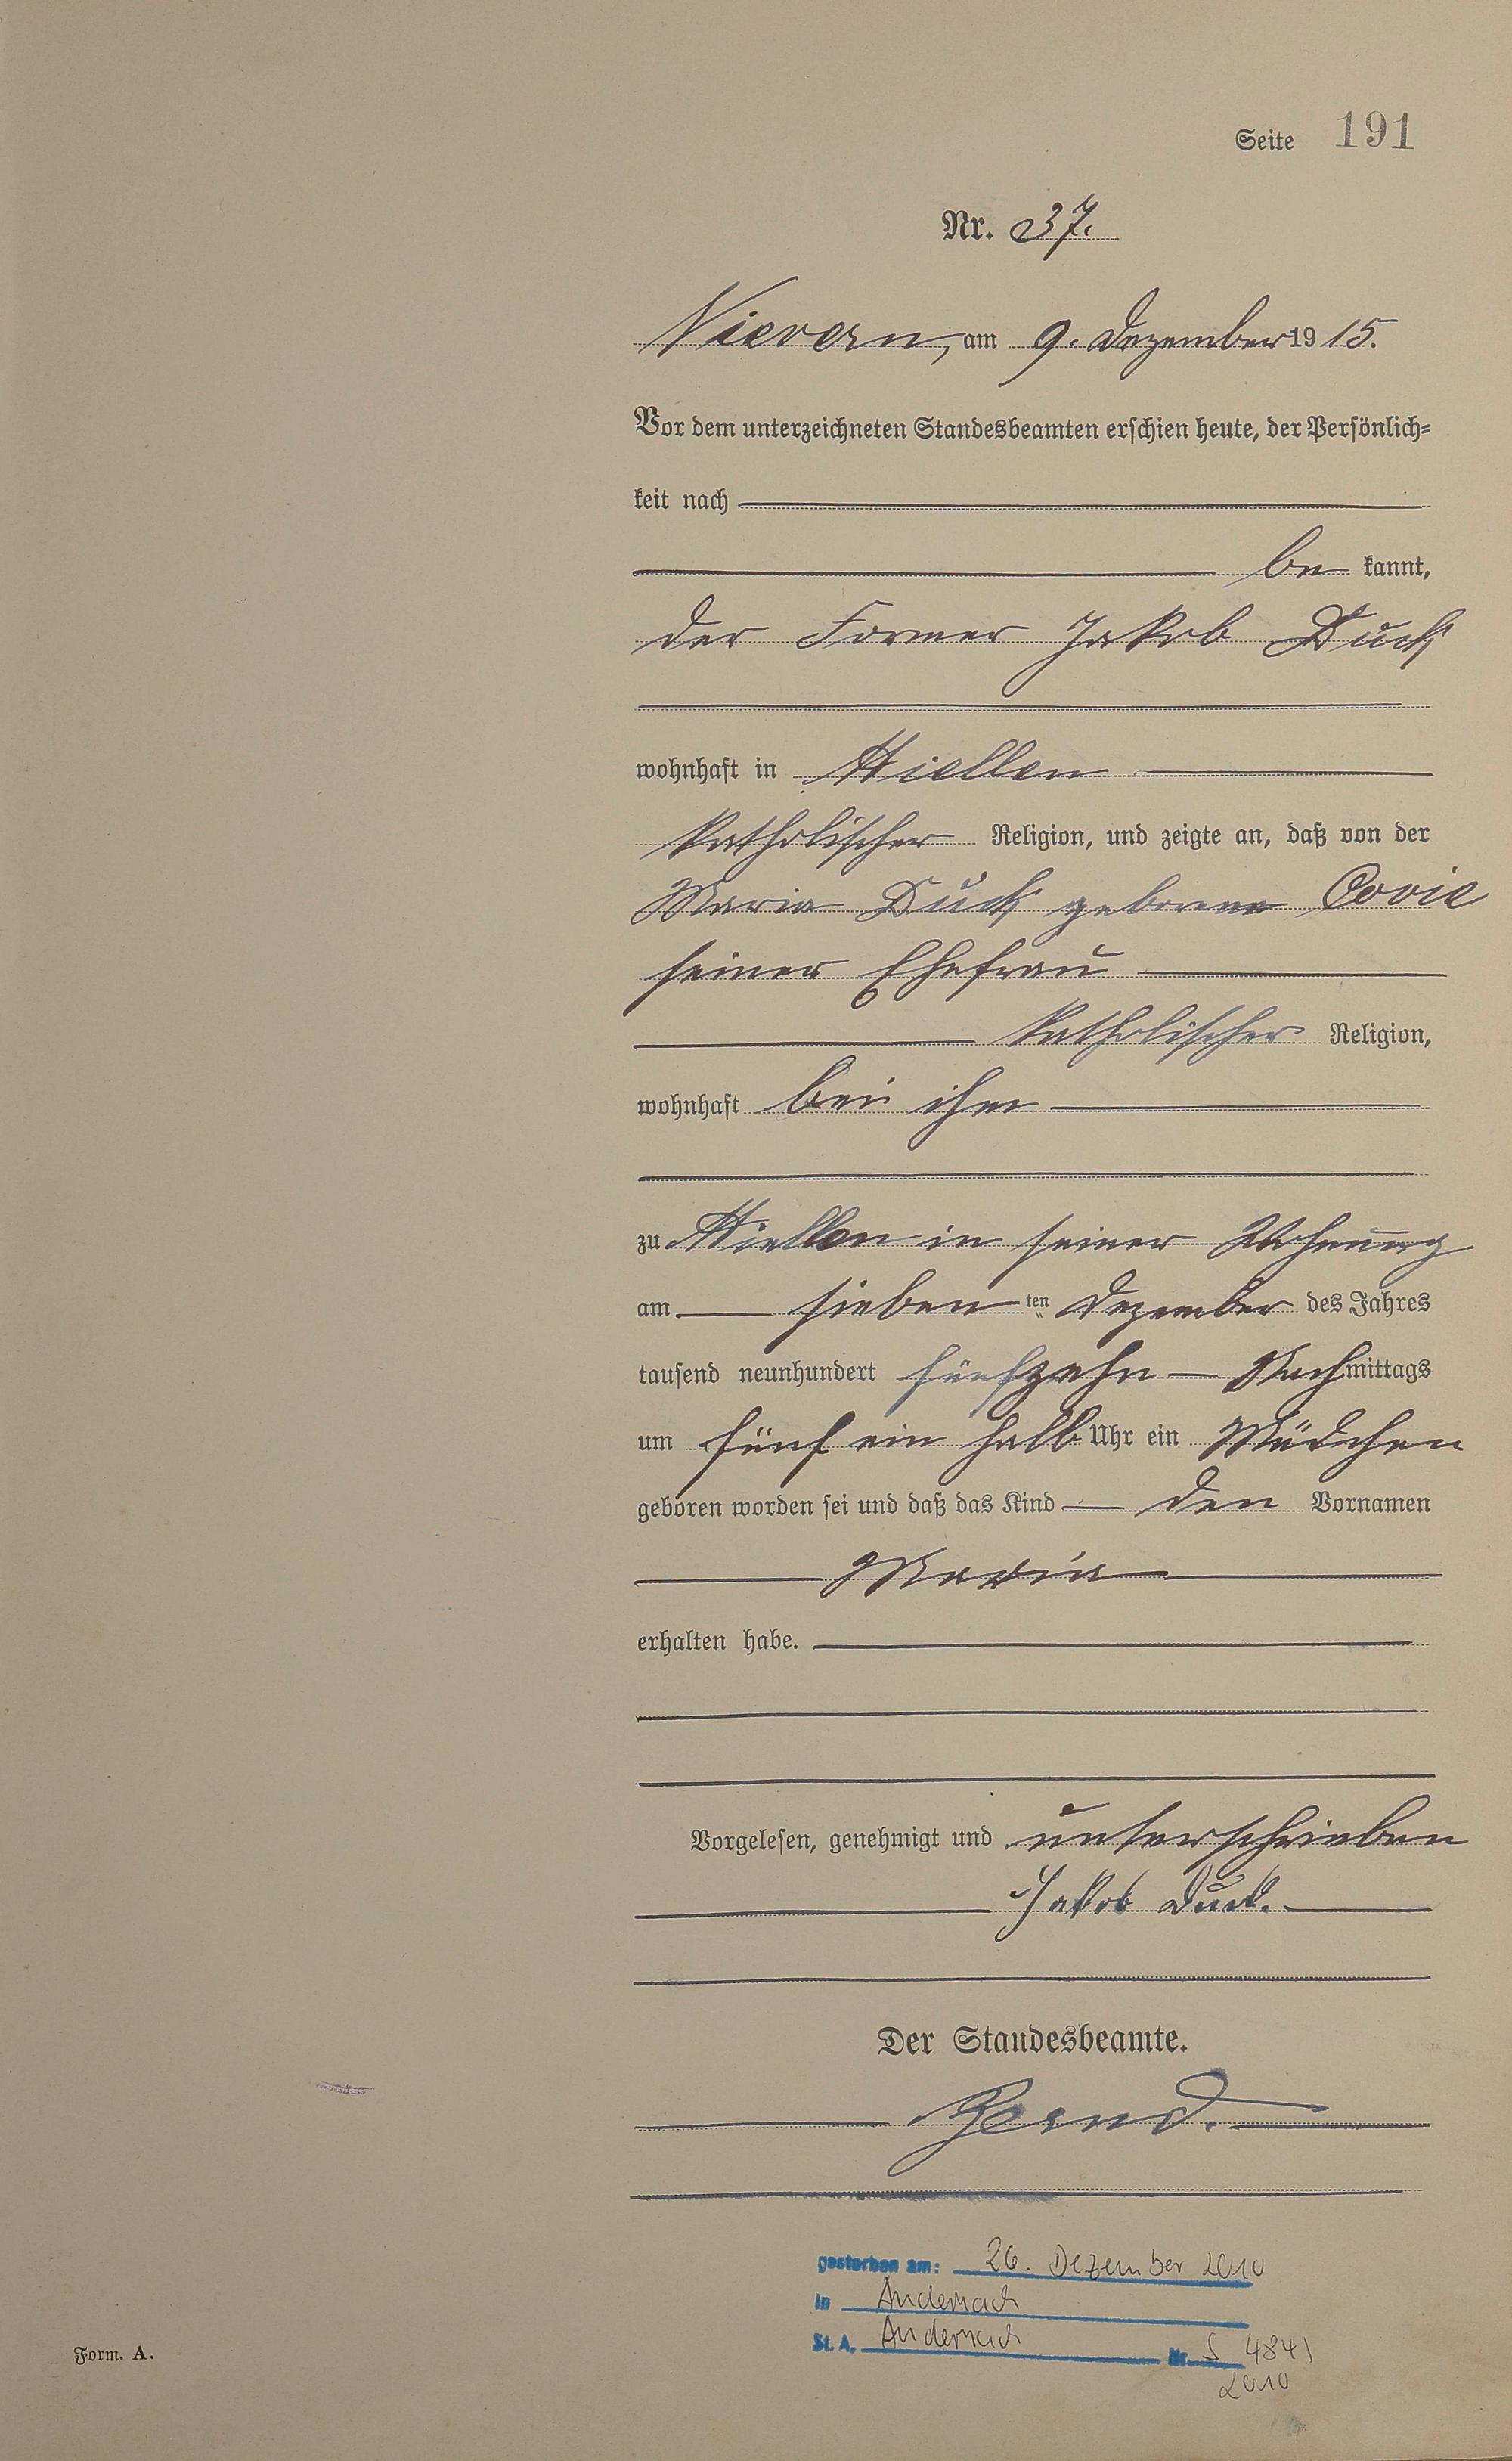 Seite 191
Nr. 37.
Nievern, am 9. Dezember 1915.
Vor dem unterzeichneten Standesbeamten erschien heute, der Persönlich=
keit nach
be kannt,
der Former Jakob Duck
wohnhaft in Miellen
katholischer Religion, und zeigte an, daß von der
Maria Duck geborene Covic
seiner Ehefrau
katholischer Religion,
wohnhaft bei ihm
zu Miellen in seiner Wohnung
am sieben ten Dezember des Jahres
tausend neunhundert fünfzehn Nachmittags
um fünf ein halb Uhr ein Mädchen
geboren worden sei und daß das Kind den Vornamen
Maria
erhalten habe.
Vorgelesen, genehmigt und unterschrieben
Jakob Duck.
Der Standesbeamte.
gestorben am: 26. Dezember 2010
in Andernach
St. A. Andernach Nr. S 4841
2010
Form. A.